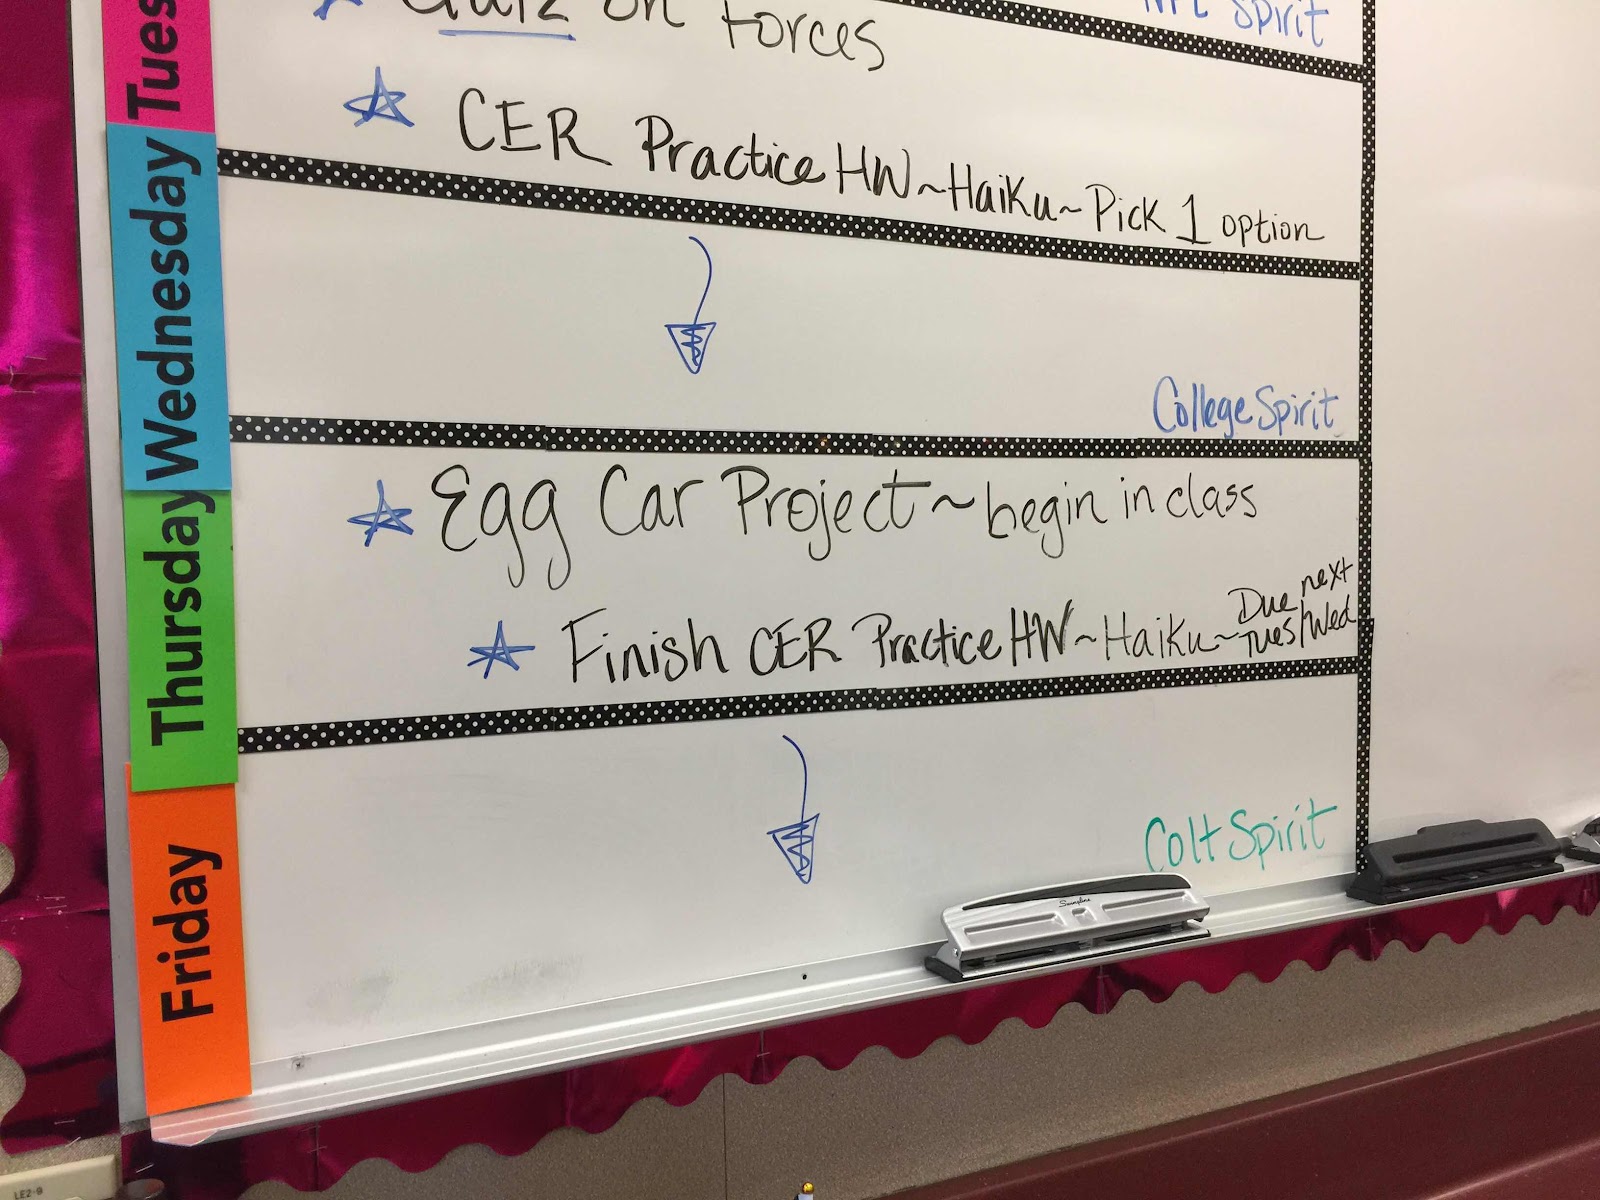 Tues
Quiz on Forces
NFL Spirit
CER Practice HW~Haiku~Pick 1 option
Wednesday
College Spirit
Thursday
Egg Car Project~begin in class
Finish CER Practice HW~Haiku~Due next Tues/Wed
Friday
Colt Spirit
Swingline
LE2-9